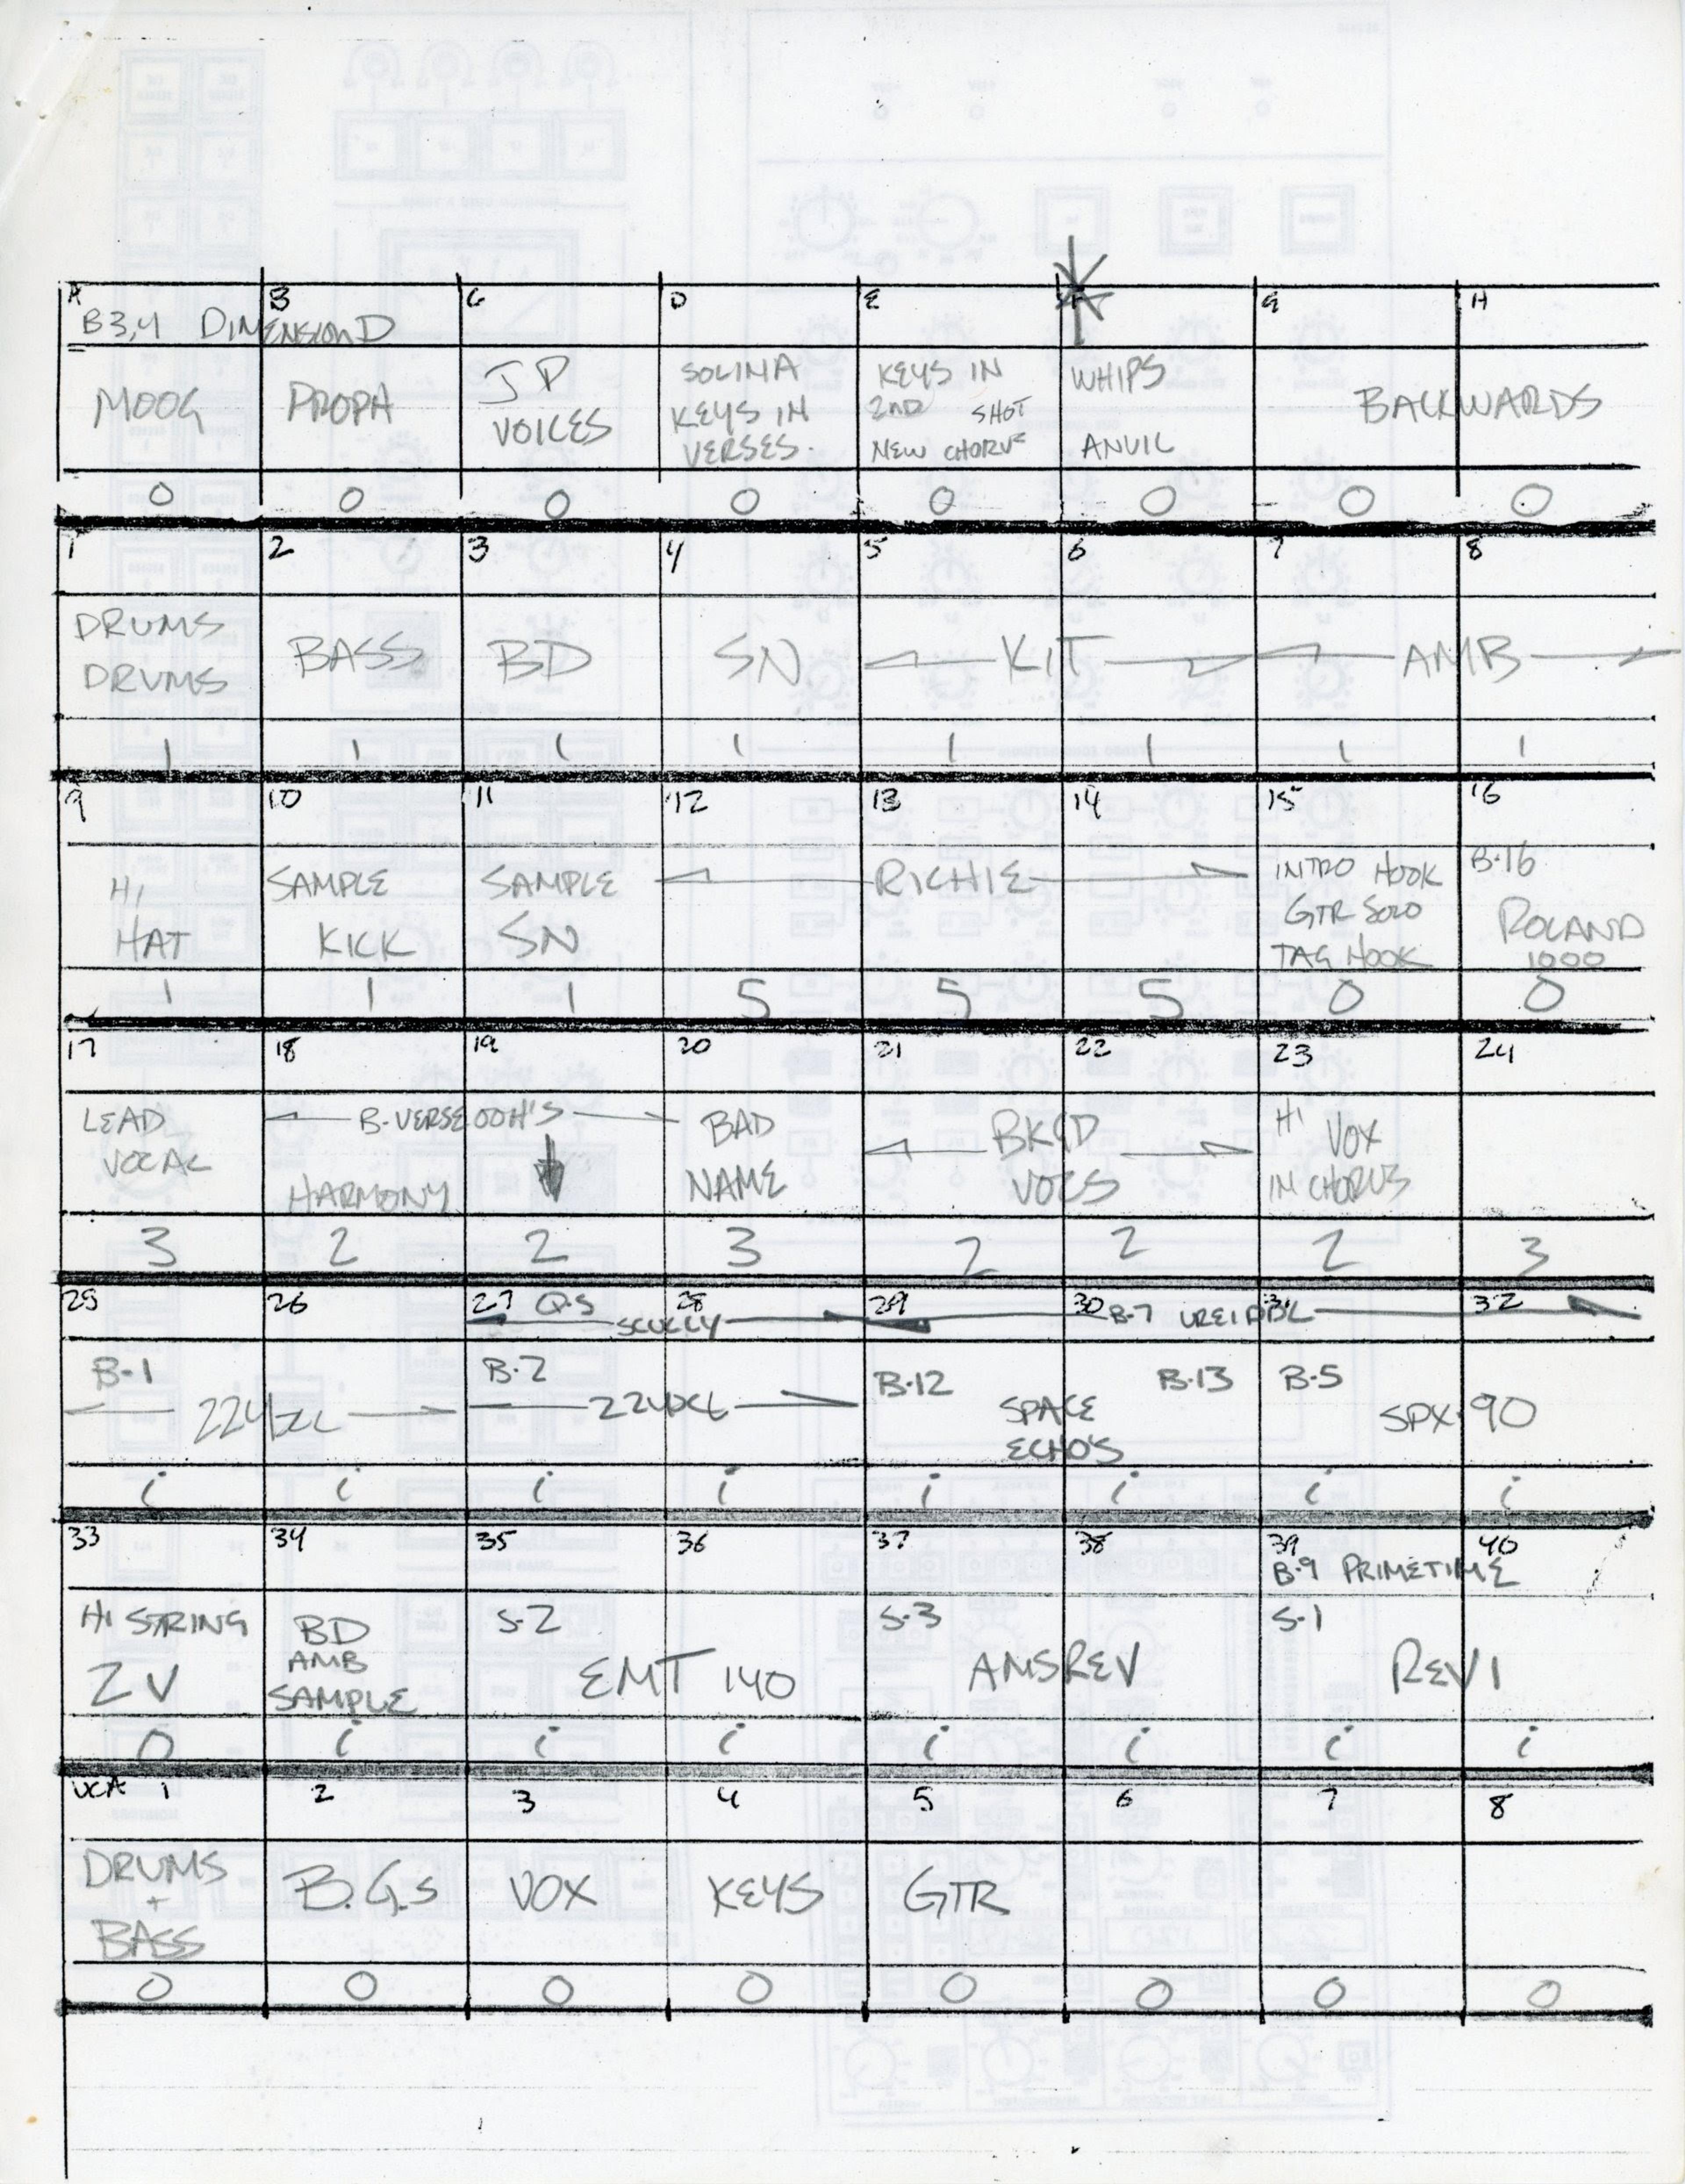 A B C D E F G H
B3,4 DIMENSION D
MOOG PROPH JP VOICES SOLINA KEYS IN VERSES. KEYS IN 2ND SHOT NEW CHORUS WHIPS ANVIL BACKWARDS
0 0 0 0 0 0 0 0
1 2 3 4 5 6 7 8
DRUMS DRUMS BASS BD SN KIT AMB
1 1 1 1 1 1 1 1
9 10 11 12 13 14 15 16
HI HAT SAMPLE KICK SAMPLE SN RICHIE INTRO HOOK GTR SOLO TAG HOOK B-16 ROLAND 1000
1 1 1 5 5 5 0 0
17 18 19 20 21 22 23 24
LEAD VOCAL B-VERSE OOH'S HARMONY BAD NAME BKGD VOCS HI VOX IN CHORUS
3 2 2 3 2 2 2 3
25 26 27 28 29 30 31 32
Q-5 SCULLY B-7 UREI DDL
B-1 224XL B-2 224XL B-12 SPACE ECHO'S B-13 B-5 SPX-90
i i i i i i i i
33 34 35 36 37 38 39 40
B-9 PRIMETIME
HI STRING 2V BD AMB SAMPLE S-2 EMT 140 S-3 AMS REV S-1 REV 1
0 i i i i i i i
VCA 1 2 3 4 5 6 7 8
DRUMS + BASS B.G.s VOX KEYS GTR
0 0 0 0 0 0 0 0